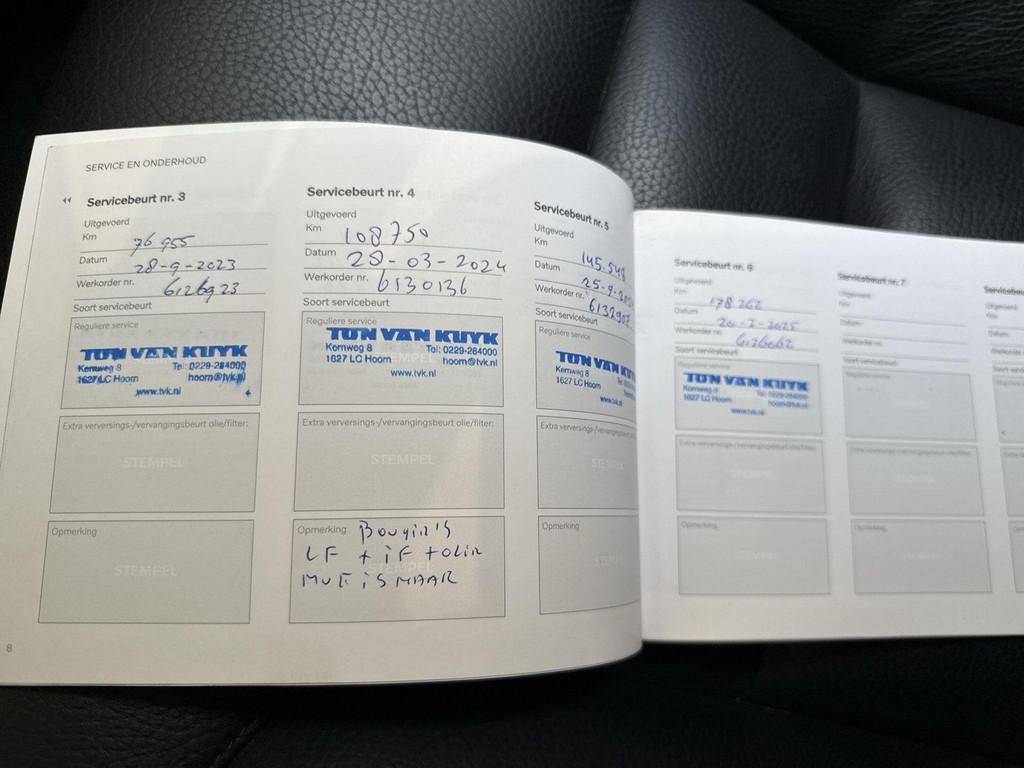 SERVICE EN ONDERHOUD
Servicebeurt nr. 3
Uitgevoerd
Km 76 955
Datum 28-9-2023
Werkorder nr. 6126923
Soort servicebeurt
Reguliere service
TON VAN KUYK
Kernweg 8 Tel: 0229-284000
1627 LC Hoorn hoorn@tvk.nl
www.tvk.nl
Extra verversings-/vervangingsbeurt olie/filter:
STEMPEL
Opmerking
STEMPEL
8
Servicebeurt nr. 4
Uitgevoerd
Km 108750
Datum 28-03-2024
Werkorder nr. 6130136
Soort servicebeurt
Reguliere service
TON VAN KUYK
Kernweg 8 Tel: 0229-284000
1627 LC Hoorn hoorn@tvk.nl
www.tvk.nl
Extra verversings-/vervangingsbeurt olie/filter:
STEMPEL
Opmerking Bougin's
LF + iF + olin
STEMPEL
Servicebeurt nr. 5
Uitgevoerd
Km 145.548
Datum 25-9-
Werkorder nr.
Soort servicebeurt
Reguliere service
TON VAN KUY
Kernweg 8
1627 LC Hoorn
www.tvk
Extra verversings-/vervangingsb
STEMPE
Opmerking
STEMP
Servicebeurt nr. 6
Uitgevoerd
Km 178 262
Datum
Werkorder nr.
Soort servicebeurt
Reguliere service
TON VAN KUYK
Kernweg 8 Tel: 0229-284000
1627 LC Hoorn hoorn@tvk.nl
www.tvk.nl
Extra verversings-/vervangingsbeurt olie/filter:
Opmerking
Servicebeurt nr. 7
Uitgevoerd
Km
Datum
Werkorder nr.
Soort servicebeurt
Reguliere service
Extra verversings-/vervangingsbeurt olie/filter:
Opmerking